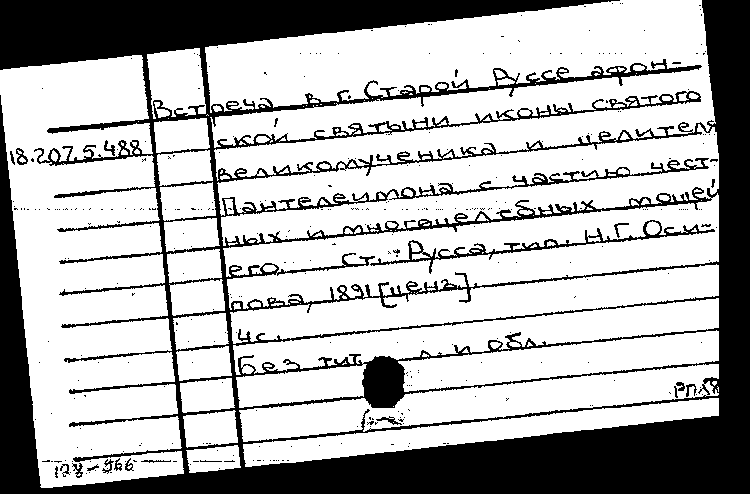 Встреча в г. Старой Руссе афон-
18.207.5.488 ской святыни иконы святого
великомученика и целителя
Пантелеимона с частию чест-
ных и многоцелебных мощей
его. Ст. Русса, тип. Н.Г. Оси-
пова, 1891 [ценз].
4с.
Без тит. л. и обл.